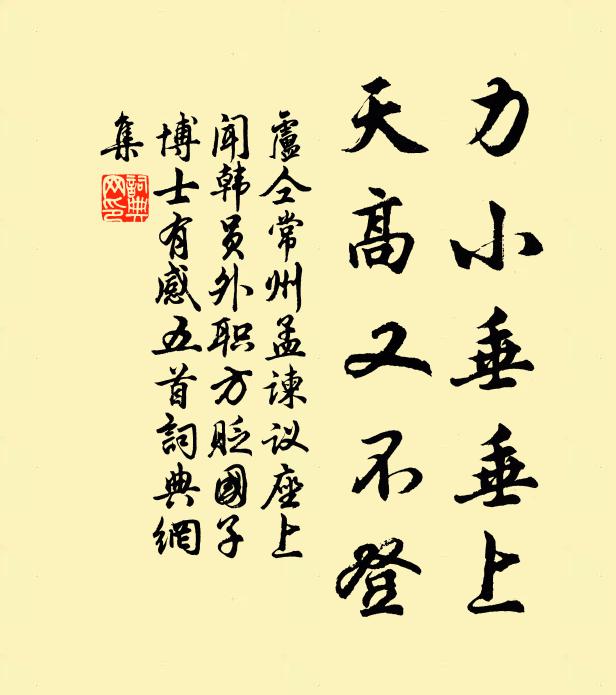 力小垂垂上
天高又不登
盧仝常州孟諫议座上
闻韩员外职方贬國子
博士有感五首詞典網
集
詞典
网印